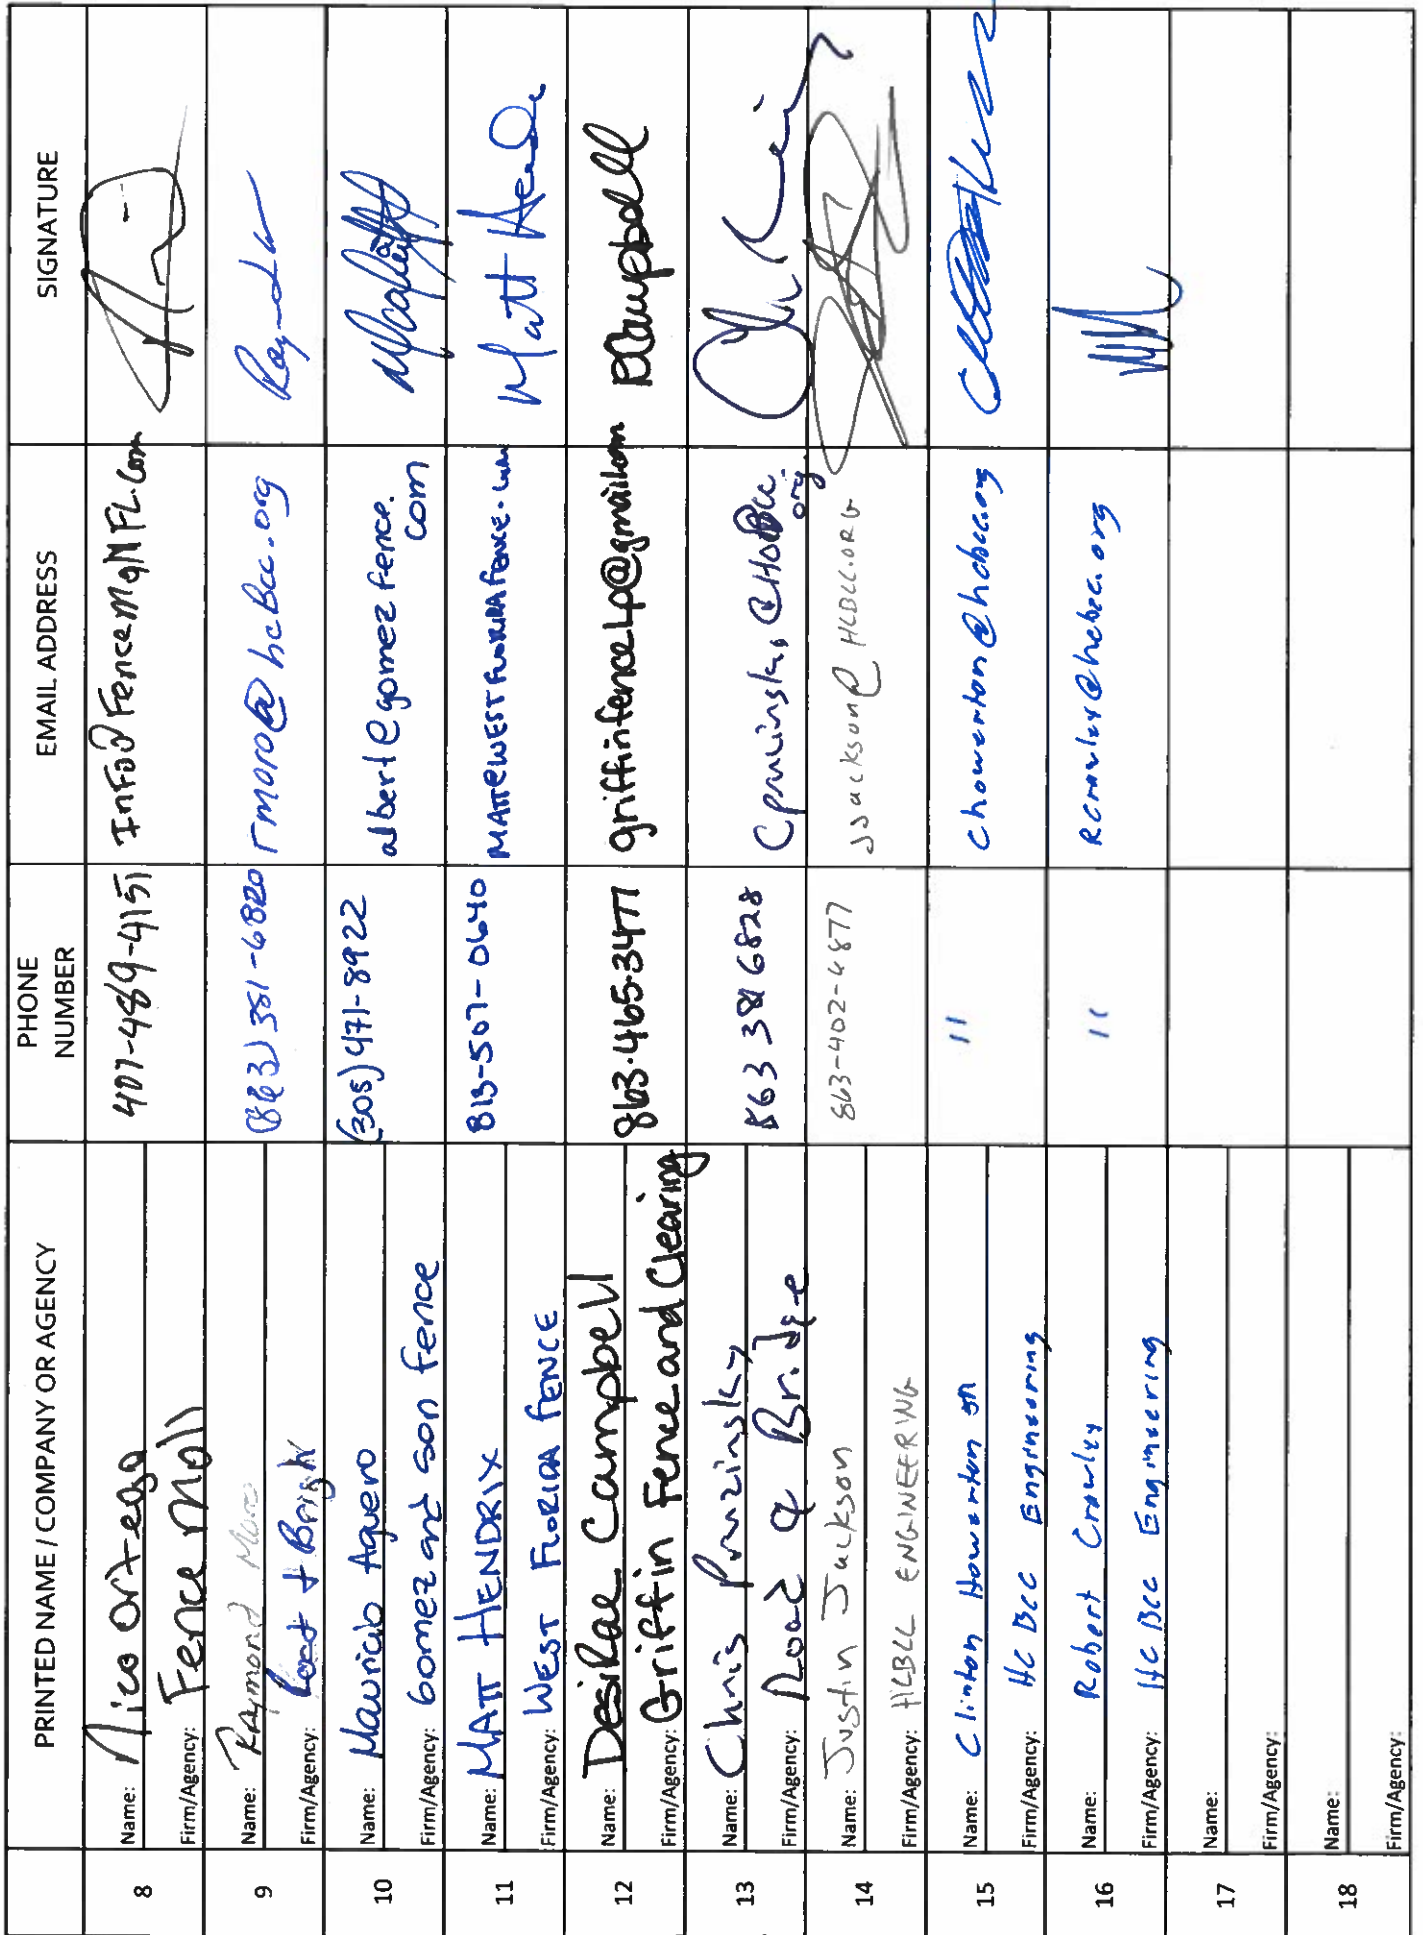 PRINTED NAME / COMPANY OR AGENCY
PHONE NUMBER
EMAIL ADDRESS
SIGNATURE
8
Name: Nico Ortega
Firm/Agency: Fence Moll
407-489-4151
Info@FenceMgMFL.com
9
Name: Raymond Moro
Firm/Agency: Road + Bright
(863) 381-6820
rmoro@hcBcc.org
10
Name: Mauricio Aguero
Firm/Agency: Gomez and son fence
(305) 471-8922
albert@gomezfence.
com
11
Name: MATT HENDRIX
Firm/Agency: WEST FLORIDA FENCE
813-507-0640
MATT@WESTFLORIDAfence.com
Matt
12
Name: Desirae Campbell
Firm/Agency: Griffin Fence and Clearing
863.465.3477
griffinfenceLp@gmail.com
DCampbell
13
Name: Chris Pruzinsky
Firm/Agency: Road & Bridge
863 381 6828
14
Name: Justin Jackson
Firm/Agency: HCBCC ENGINEERING
863-402-6877
jjackson@HCBCC.ORG
15
Name: Clinton Howerton JR
Firm/Agency: HC BCC Engineering
11
chowerton@hcbcc.org
16
Name: Robert Crawley
Firm/Agency: HC BCC Engineering
11
Rcrawley@hcbcc.org
17
Name:
Firm/Agency:
18
Name:
Firm/Agency: